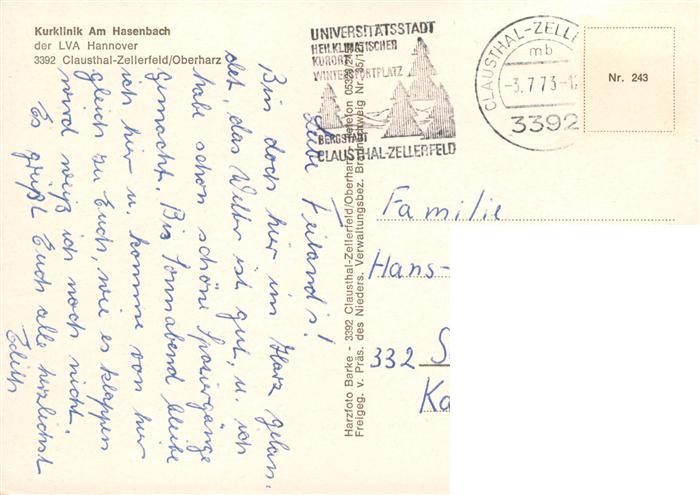 Kurklinik Am Hasenbach
der LVA Hannover
3392 Clausthal-Zellerfeld/Oberharz
UNIVERSITÄTSSTADT
HEILKLIMATISCHER
KURORT
WINTERSPORTPLATZ
BERGSTADT
CLAUSTHAL-ZELLERFELD
CLAUSTHAL-ZELL
mb
-3.7.73-1
3392
Nr. 243
Liebe Feilands!
Bin doch hier im Harz gelan-
det, das Wetter ist gut, u. ich
habe schon schöne Spaziergänge
gemacht. Bis Sonnabend bleibe
ich hier u. komme von hier
gleich zu Euch, wie es klappen
wird weiß ich noch nicht.
Es grüßt Euch alle herzlichst
Edith
Harzfoto Barke - 3392 Clausthal-Zellerfeld/Oberharz
Freigeg. v. Präs. des Nieders. Verwaltungsbez. Braunschweig Nr.
Familie
Hans-
332 S
Ka